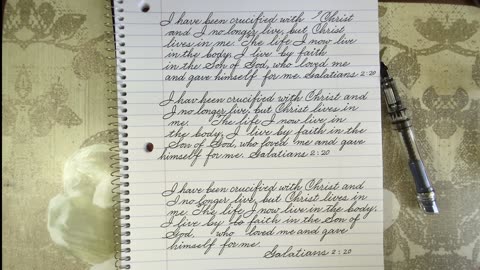 I have been crucified with Christ
and I no longer live, but Christ
lives in me. The life I now live
in the body, I live by faith
in the Son of God, who loved me
and gave himself for me. Galatians 2:20
I have been crucified with Christ and
I no longer live, but Christ lives in
me. The life I now live in
the body, I live by faith in the
Son of God, who loved me and gave
himself for me. Galatians 2:20
I have been crucified with Christ and
I no longer live, but Christ lives in
me. The life I now live in the body,
I live by faith in the Son of
God, who loved me and gave
himself for me.
Galatians 2:20